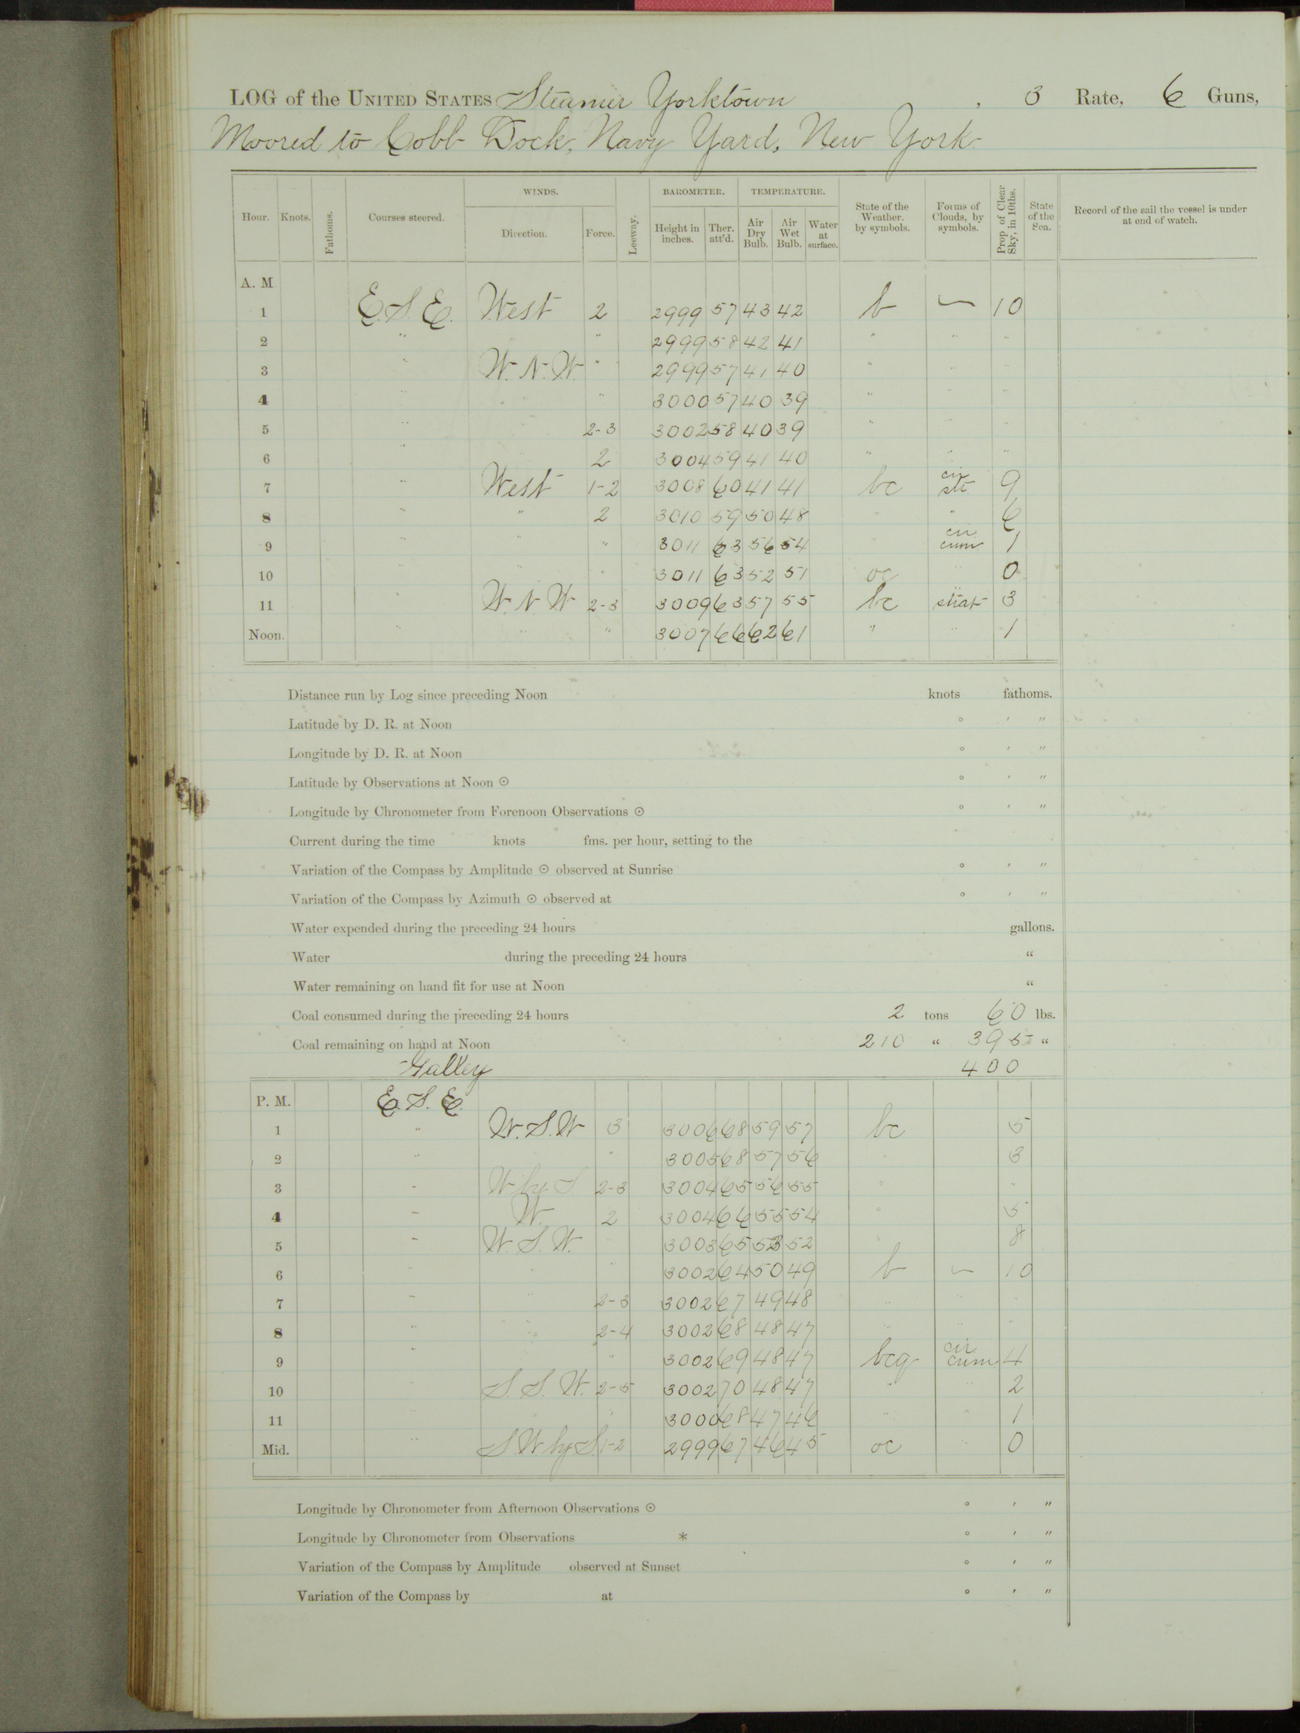 LOG of the UNITED STATES Steamer Yorktown , 3 Rate, 6 Guns,
Moored to Cobb Dock, Navy Yard, New York.
Hour. Knots. Fathoms. Courses steered. WINDS. Direction. Force. Leeway. BAROMETER. Height in inches. Ther. att'd. TEMPERATURE. Air Dry Bulb. Air Wet Bulb. Water at surface. State of the Weather. by symbols. Forms of Clouds, by symbols. Prop of Clear Sky, in 10ths. State of the Sea. Record of the sail the vessel is under at end of watch.
A. M
1 E.S.E. West 2 2999 57 43 42 b — 10
2 " " 2999 58 42 41 " " "
3 " W.N.W. " 2999 57 41 40 " " "
4 " " " 3000 57 40 39 " " "
5 " " 2-3 3002 58 40 39 " " "
6 " " 2 3004 59 41 40 " " "
7 " West 1-2 3008 60 41 41 bc cir str 9
8 " " 2 3010 59 50 48 " " 6
9 " " " 3011 63 56 54 " cir cum 1
10 " " " 3011 63 52 51 oc " 0
11 " W.N.W 2-3 3009 63 57 55 bc strat 3
Noon. " " " 3007 66 62 61 " " 1
Distance run by Log since preceding Noon knots fathoms.
Latitude by D. R. at Noon ° ' "
Longitude by D. R. at Noon ° ' "
Latitude by Observations at Noon ☉ ° ' "
Longitude by Chronometer from Forenoon Observations ☉ ° ' "
Current during the time knots fms. per hour, setting to the
Variation of the Compass by Amplitude ☉ observed at Sunrise ° ' "
Variation of the Compass by Azimuth ☉ observed at ° ' "
Water expended during the preceding 24 hours gallons.
Water during the preceding 24 hours "
Water remaining on hand fit for use at Noon "
Coal consumed during the preceding 24 hours 2 tons 60 lbs.
Coal remaining on hand at Noon 210 " 395 "
Galley 400
P. M. E.S.E.
1 " W.S.W 3 3006 68 59 57 bc 5
2 " " 3005 68 57 56 " 3
3 " W by S 2-3 3004 65 56 55 " "
4 " W. 2 3004 66 55 54 " 5
5 " W.S.W. " 3003 65 53 52 8
6 " " " 3002 64 50 49 b — 10
7 " " 2-3 3002 67 49 48 " " "
8 " " 2-4 3002 68 48 47 " " "
9 " " " 3002 69 48 47 bcq cir cum 4
10 " S.S.W. 2-5 3002 70 48 47 " " 2
11 " " " 3000 68 47 46 " " 1
Mid. " S W by S 1-2 2999 67 46 45 oc 0
Longitude by Chronometer from Afternoon Observations ☉ ° ' "
Longitude by Chronometer from Observations * ° ' "
Variation of the Compass by Amplitude observed at Sunset ° ' "
Variation of the Compass by at ° ' "